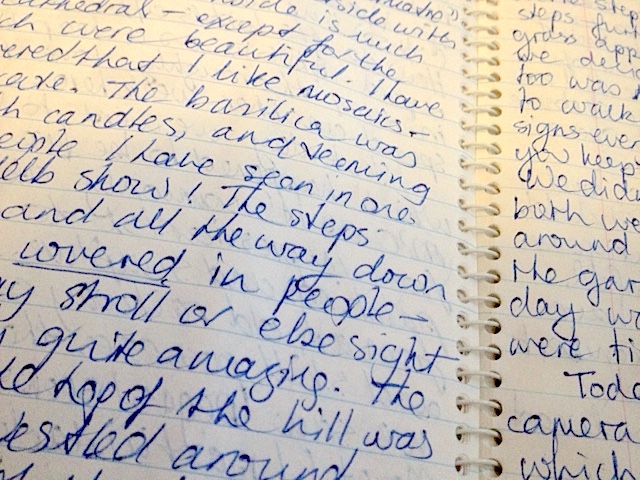 cathedral - except for the
side with
is much
ch were beautiful. I have
ered that I like mosaics -
The basilica was
h candles, and seeming
eople I have seen in one
show! The steps
and all the way down
covered in people -
ay stroll or else sight
quite amazing. The
top of the hill was
estled around
steps fur
grass app
we deli
too was
to walk
signs ever
you keep
We did
both we
around
the gar
day wa
were ti
Toda
camera
which